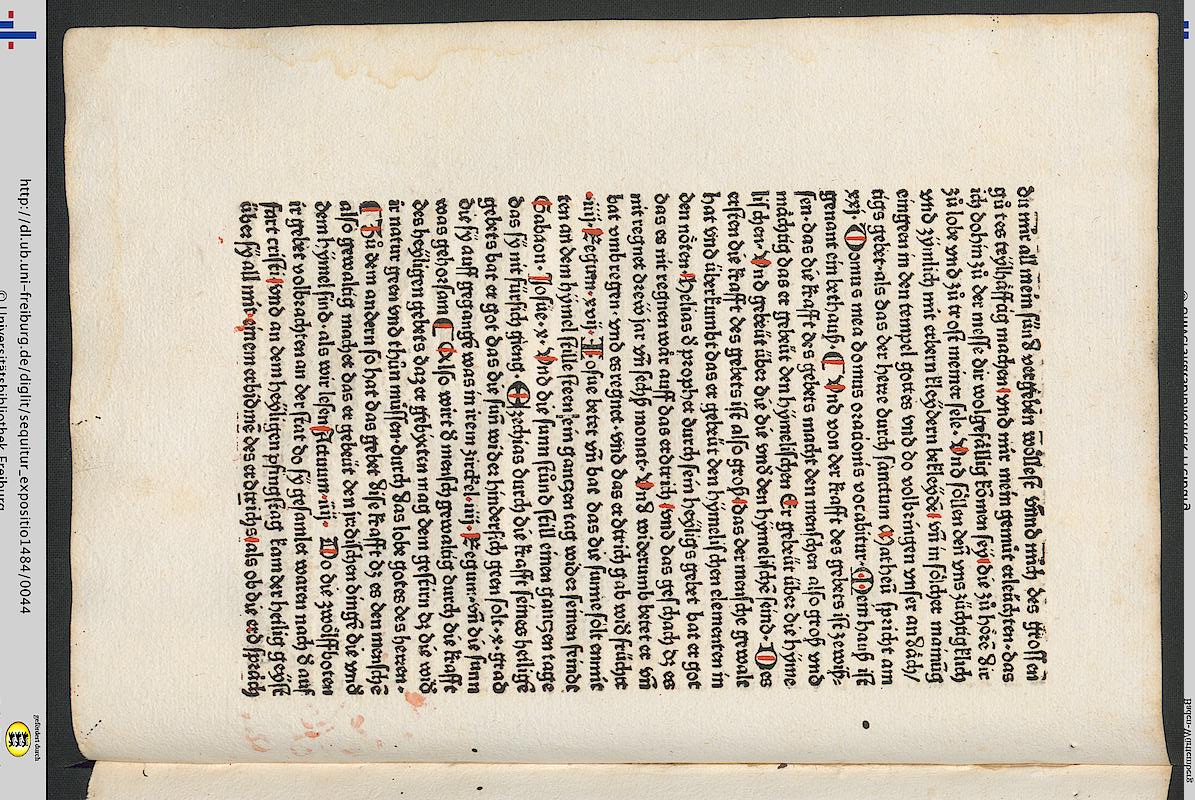 du mir all mein sünd vergeben wöllest vnnd mich des grossen
gůtes teÿlhafftag machen vnd mir mein gemůt erleüchten. das
ich dohin zů der messe dir wolgefällig kömen seÿ die zů hörē dir
zů lobe vnd zů trost meiner sele. Vnd söllen deñ vns züchtigklich
vnd zÿmlich mit erbern kleÿdern bekleÿdē vñ in sölcher mainūg
eingeen in den tempel gottes vnd do volbringen vnser andäch/
tigs gebet. als das der herre durch sanctum Matheū spricht am
xxj. Domus mea domus oracionis vocabitur. Mein hauß ist
genant ein bethauß. Vnd von der krafft des gebets ist zewiß=
sen. das die krafft des gebets macht den menschen also groß vnd
mächtig das er gebeüt den hÿmelischen Er gebeüt über die hÿme
lischen. Vnd gebeüt über die die vnd den hÿmelischē seind. Des
ersten die krafft des gebets ist also groß das der mensche gewalt
hat vnd überkumbt das er gebeüt den hÿmelischen elementen in
den nöten. Helias d prophet durch sein heÿligs gebet bat er got
das es nit regnen wär auff das erdtrich vnd das geschach dz es
nit regnet dreÿ jar vñ sechß monat. Vnd widerumb betet er vñ
bat vmb regen. vnd es regnet vnd das erdtrich gab wid frücht
.iij. Regum. xvij. Josue betet vñ bat das die sunne solt ennit
ten an dem hÿmel stille steen ein gantzen tag wider seinen feinde
Gabaon. Josue. x. Vnd die sunn stůnd still einen gantzen tage
das sÿ nit fürsich gieng. Ezechias durch die krafft seines heiligē
gebets bat er got das die sun wider hindersich geen solt. x. grad
die sÿ auff gegangē was in irem zirckel. iiij. Regum. vñ die sunn
was gehorsam Also wirt d mensch gewaltig durch die krafft
des heÿligen gebetes daz er gebÿeten mag dem gestirn dz die wid
ir natur geen vnd thůn müssen. durch das lobe gotes des herren.
Zů dem andern so hat das gebet dise krafft dz es den menschē
also gewaltig machet das er gebeüt den irdischen dingē die vnd
dem hÿmel sind. als wir lesen Actuum. iiij. Do die zwölffboten
ir gebet volbrachten an der stat do sÿ gesamlet waren nach d auf
fart cristi vnd an dem heÿligen pfingstag kam der heilig geÿst
über sÿ all mit einem erbidmē des erdtrichs als ob die erd spräch
http://dl.ub.uni-freiburg.de/diglit/sequitur_expositio1484/0044
© Universitätsbibliothek Freiburg
gefördert durch